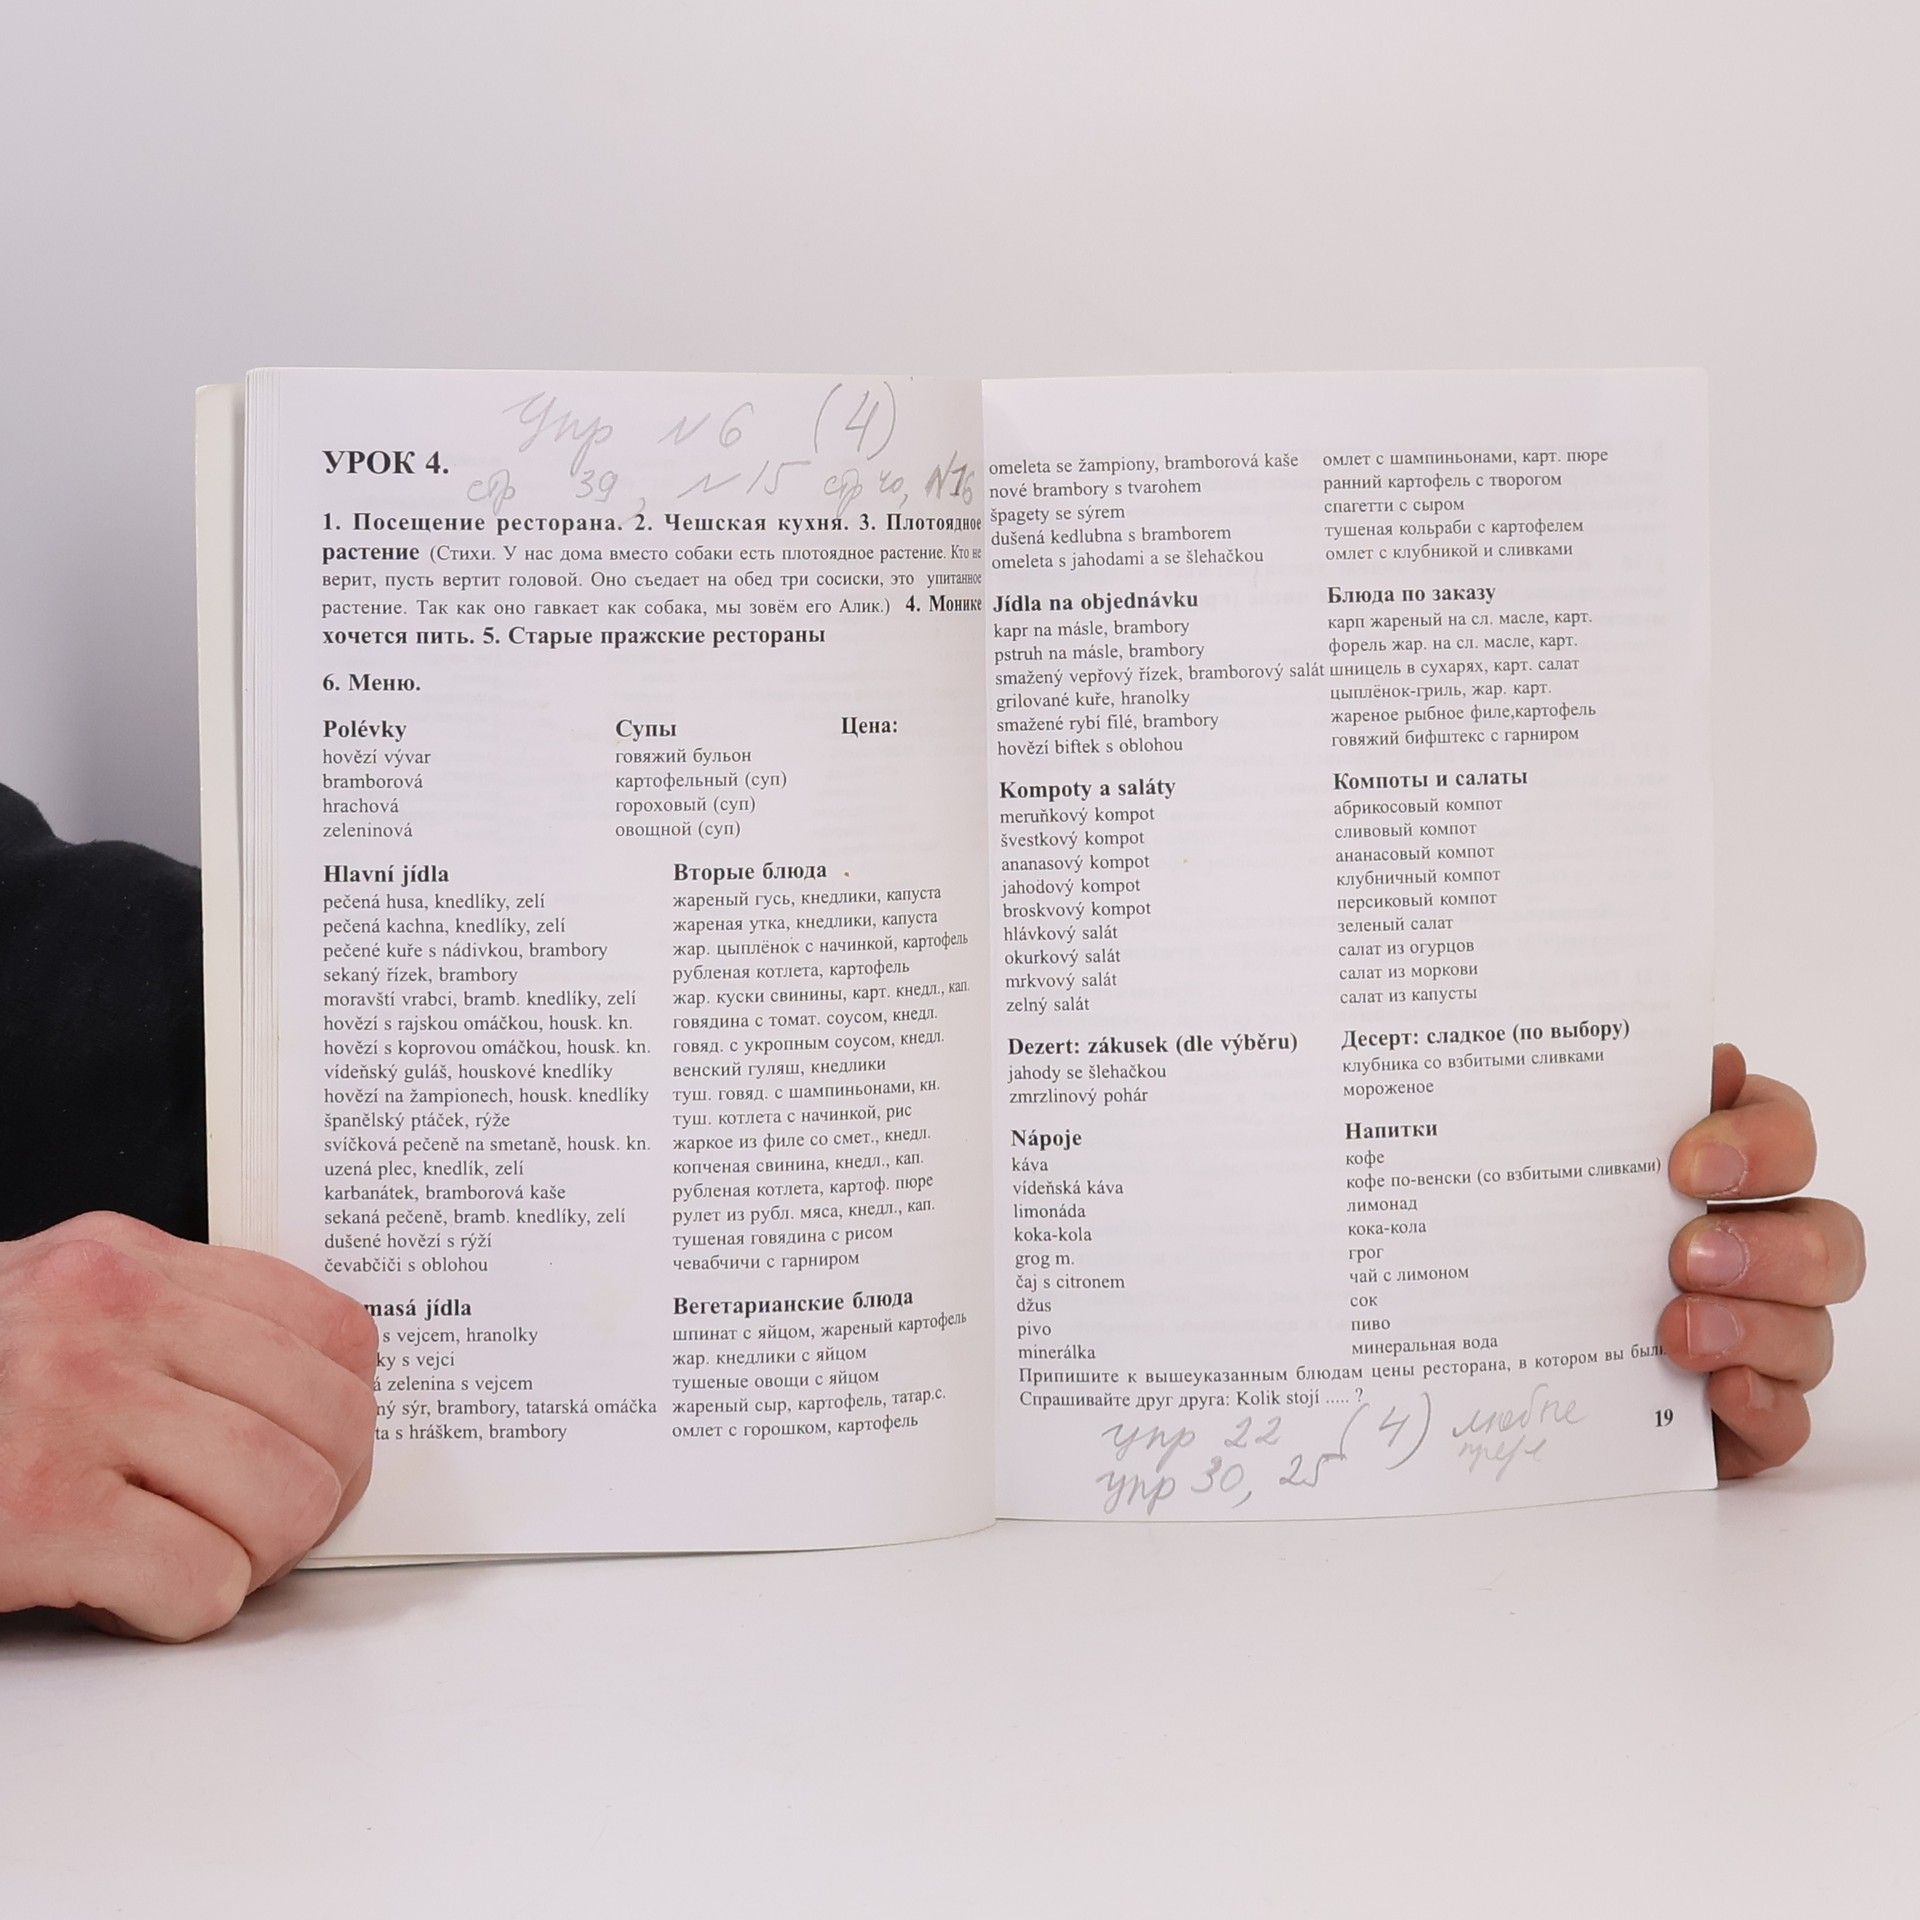 упр N 6 (4)
УРОК 4.
стр 39, N 15 стр 40, N16
1. Посещение ресторана. 2. Чешская кухня. 3. Плотоядное
растение (Стихи. У нас дома вместо собаки есть плотоядное растение. Кто не
верит, пусть вертит головой. Оно съедает на обед три сосиски, это упитанное
растение. Так как оно гавкает как собака, мы зовём его Алик.) 4. Монике
хочется пить. 5. Старые пражские рестораны
6. Меню.
Polévky Супы Цена:
hovězí vývar говяжий бульон
bramborová картофельный (суп)
hrachová гороховый (суп)
zeleninová овощной (суп)
Hlavní jídla Вторые блюда
pečená husa, knedlíky, zelí жареный гусь, кнедлики, капуста
pečená kachna, knedlíky, zelí жареная утка, кнедлики, капуста
pečené kuře s nádivkou, brambory жар. цыплёнок с начинкой, картофель
sekaný řízek, brambory рубленая котлета, картофель
moravští vrabci, bramb. knedlíky, zelí жар. куски свинины, карт. кнедл., кап.
hovězí s rajskou omáčkou, housk. kn. говядина с томат. соусом, кнедл.
hovězí s koprovou omáčkou, housk. kn. говяд. с укропным соусом, кнедл.
vídeňský guláš, houskové knedlíky венский гуляш, кнедлики
hovězí na žampionech, housk. knedlíky туш. говяд. с шампиньонами, кн.
španělský ptáček, rýže туш. котлета с начинкой, рис
svíčková pečeně na smetaně, housk. kn. жаркое из филе со смет., кнедл.
uzená plec, knedlík, zelí копченая свинина, кнедл., кап.
karbanátek, bramborová kaše рубленая котлета, картоф. пюре
sekaná pečeně, bramb. knedlíky, zelí рулет из рубл. мяса, кнедл., кап.
dušené hovězí s rýží тушеная говядина с рисом
čevabčiči s oblohou чевабчичи с гарниром
masá jídla Вегетарианские блюда
s vejcem, hranolky шпинат с яйцом, жареный картофель
ky s vejci жар. кнедлики с яйцом
á zelenina s vejcem тушеные овощи с яйцом
ný sýr, brambory, tatarská omáčka жареный сыр, картофель, татар.с.
ta s hráškem, brambory омлет с горошком, картофель
omeleta se žampiony, bramborová kaše омлет с шампиньонами, карт. пюре
nové brambory s tvarohem ранний картофель с творогом
špagety se sýrem спагетти с сыром
dušená kedlubna s bramborem тушеная кольраби с картофелем
omeleta s jahodami a se šlehačkou омлет с клубникой и сливками
Jídla na objednávku Блюда по заказу
kapr na másle, brambory карп жареный на сл. масле, карт.
pstruh na másle, brambory форель жар. на сл. масле, карт.
smažený vepřový řízek, bramborový salát шницель в сухарях, карт. салат
grilované kuře, hranolky цыплёнок-гриль, жар. карт.
smažené rybí filé, brambory жареное рыбное филе,картофель
hovězí biftek s oblohou говяжий бифштекс с гарниром
Kompoty a saláty Компоты и салаты
meruňkový kompot абрикосовый компот
švestkový kompot сливовый компот
ananasový kompot ананасовый компот
jahodový kompot клубничный компот
broskvový kompot персиковый компот
hlávkový salát зеленый салат
okurkový salát салат из огурцов
mrkvový salát салат из моркови
zelný salát салат из капусты
Dezert: zákusek (dle výběru) Десерт: сладкое (по выбору)
jahody se šlehačkou клубника со взбитыми сливками
zmrzlinový pohár мороженое
Nápoje Напитки
káva кофе
vídeňská káva кофе по-венски (со взбитыми сливками)
limonáda лимонад
koka-kola кока-кола
grog m. грог
čaj s citronem чай с лимоном
džus сок
pivo пиво
minerálka минеральная вода
Припишите к вышеуказанным блюдам цены ресторана, в котором вы были
Спрашивайте друг друга: Kolik stojí ..... ?
19
упр 22 (4)
упр 30, 25